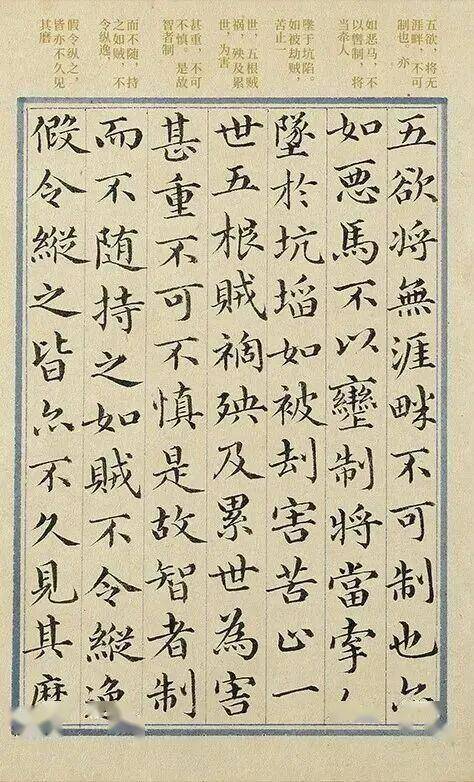 五欲，将无
涯畔，不可
制也。亦
如恶马，不
以辔制，将
当牵人
墜于坑陷。
如被劫贼，
苦止一
世，五根贼
祸，殃及累
世，为害
甚重，不可
不慎。是故
智者制
而不随，持
之如贼，不
令纵逸，
假令纵之，
皆亦不久见
其磨
五欲将無涯畔不可制也亦
如悪馬不以轡制將當牽人
墜於坑埳如被刦害苦止一
世五根賊禍殃及累世為害
甚重不可不慎是故智者制
而不随持之如賊不令縱逸
假令縱之皆亦不久見其磨